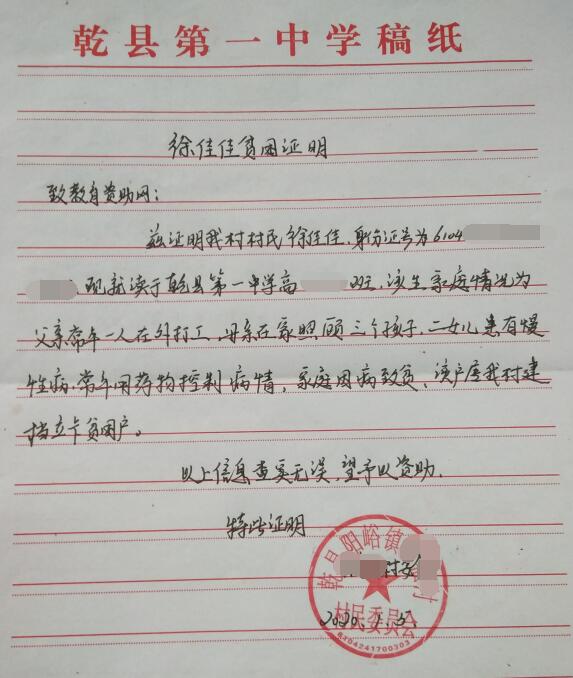 乾县第一中学稿纸
徐佳佳贫困证明
致教育资助网：
兹证明我村村民徐佳佳，身份证号为6104
现就读于乾县第一中学高 班，该生家庭情况为
父亲常年一人在外打工，母亲在家照顾三个孩子，二女儿患有慢
性病，常年用药物控制病情，家庭因病致贫，该户属我村建
档立卡贫困户。
以上信息查实无误，望予以资助。
特此证明
乾县阳峪镇 村
村民委员会
6104241700303
村委
2020.